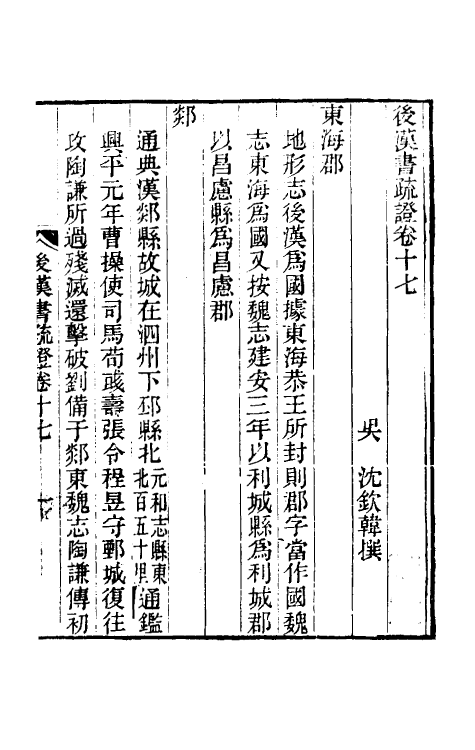 後漢書疏證卷十七
吳　沈欽韓撰
東海郡
地形志後漢為國據東海恭王所封則郡字當作國魏
志東海為國又按魏志建安三年以利城縣為利城郡
以昌慮縣為昌慮郡
郯
通典漢郯縣故城在泗州下邳縣北元和志縣東北百五十里通鑑
興平元年曹操使司馬荀彧壽張令程昱守鄄城復往
攻陶謙所過殘滅還擊破劉備于郯東魏志陶謙傳初
後漢書疏證卷十七　一